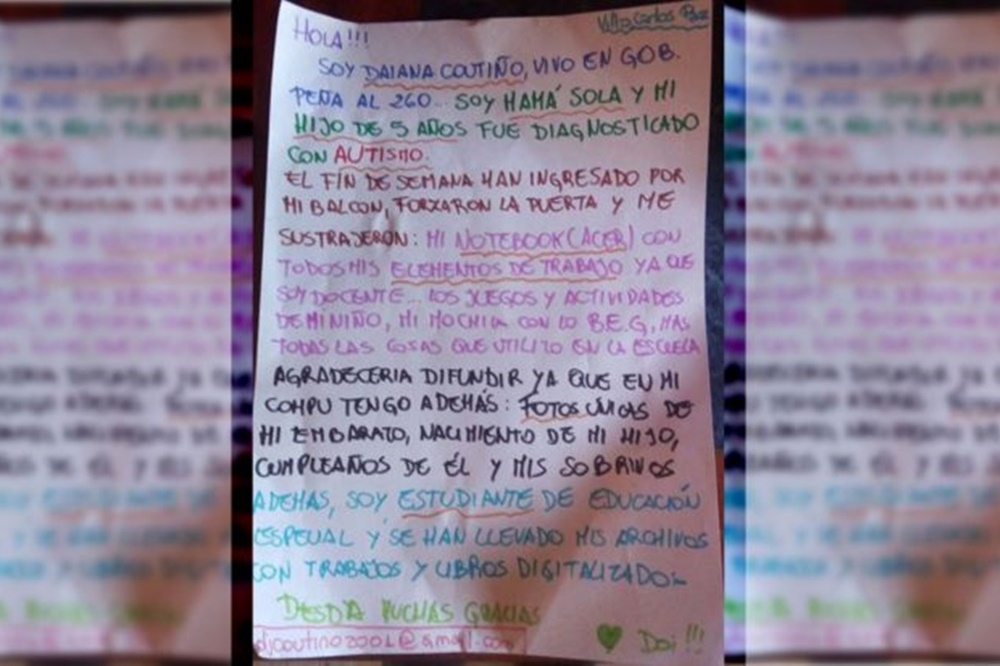 Villa Carlos Paz
HOLA!!!
SOY DAIANA COUTIÑO, VIVO EN GOB.
PEÑA AL 260.. SOY MAMÁ SOLA Y MI
HIJO DE 5 AÑOS FUE DIAGNOSTICADO
CON AUTISMO.
EL FIN DE SEMANA HAN INGRESADO POR
MI BALCON, FORZARON LA PUERTA Y ME
SUSTRAJERON: MI NOTEBOOK (ACER) CON
TODOS MIS ELEMENTOS DE TRABAJO YA QUE
SOY DOCENTE... LOS JUEGOS Y ACTIVIDADES
DE MI NIÑO, MI MOCHILA CON LO B.E.G, MAS
TODAS LAS COSAS QUE UTILIZO EN LA ESCUELA
AGRADECERIA DIFUNDIR YA QUE EN MI
COMPU TENGO ADEMÁS: FOTOS ÚNICAS DE
MI EMBARAZO, NACIMIENTO DE MI HIJO,
CUMPLEAÑOS DE ÉL Y MIS SOBRINOS
ADEMAS, SOY ESTUDIANTE DE EDUCACIÓN
ESPECIAL Y SE HAN LLEVADO MIS ARCHIVOS
CON TRABAJOS Y LIBROS DIGITALIZADO:-
DESDYA MUCHAS GRACIAS
djcoutino2001@gmail.com
Dai!!!